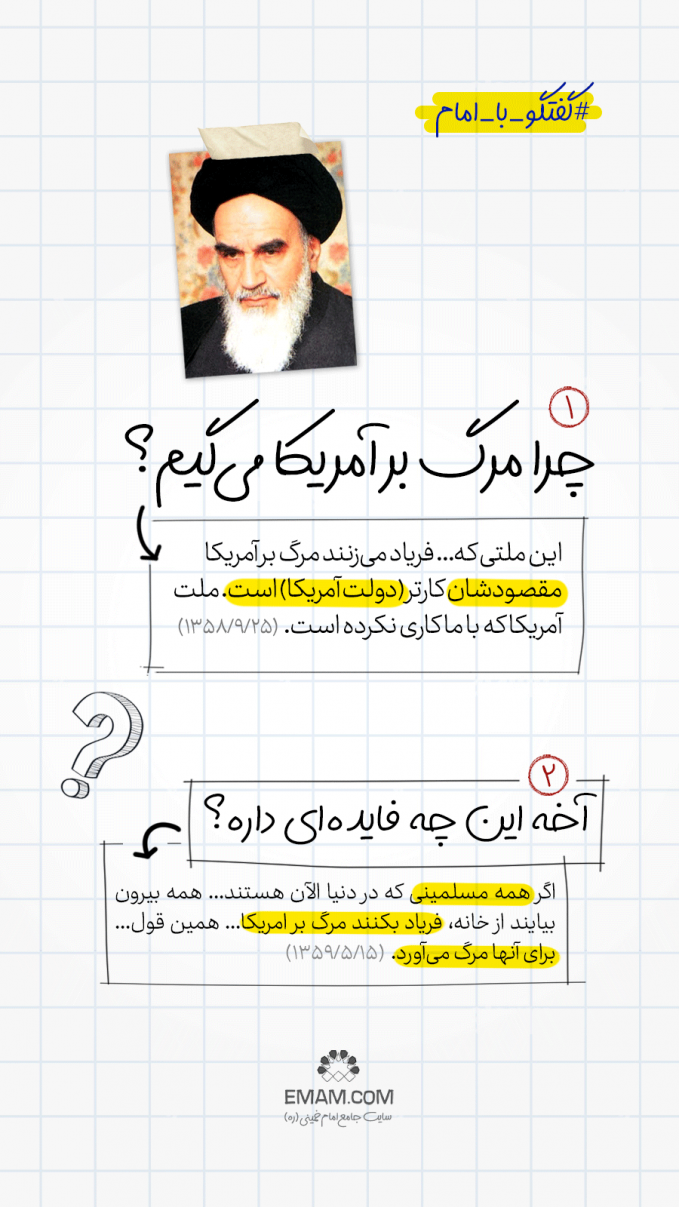 #گفتگو_با_امام
۱
چرا مرگ بر آمریکا می‌گیم؟
این ملتی که... فریاد می‌زنند مرگ بر آمریکا
مقصودشان کارتر (دولت آمریکا) است. ملت
آمریکا که با ما کاری نکرده است. (۱۳۵۸/۹/۲۵)
۲
آخه این چه فایده‌ای داره؟
اگر همه مسلمینی که در دنیا الآن هستند... همه بیرون
بیایند از خانه، فریاد بکنند مرگ بر امریکا... همین قول...
برای آنها مرگ می‌آورد. (۱۳۵۹/۵/۱۵)
EMAM.COM
سایت جامع امام خمینی (ره)